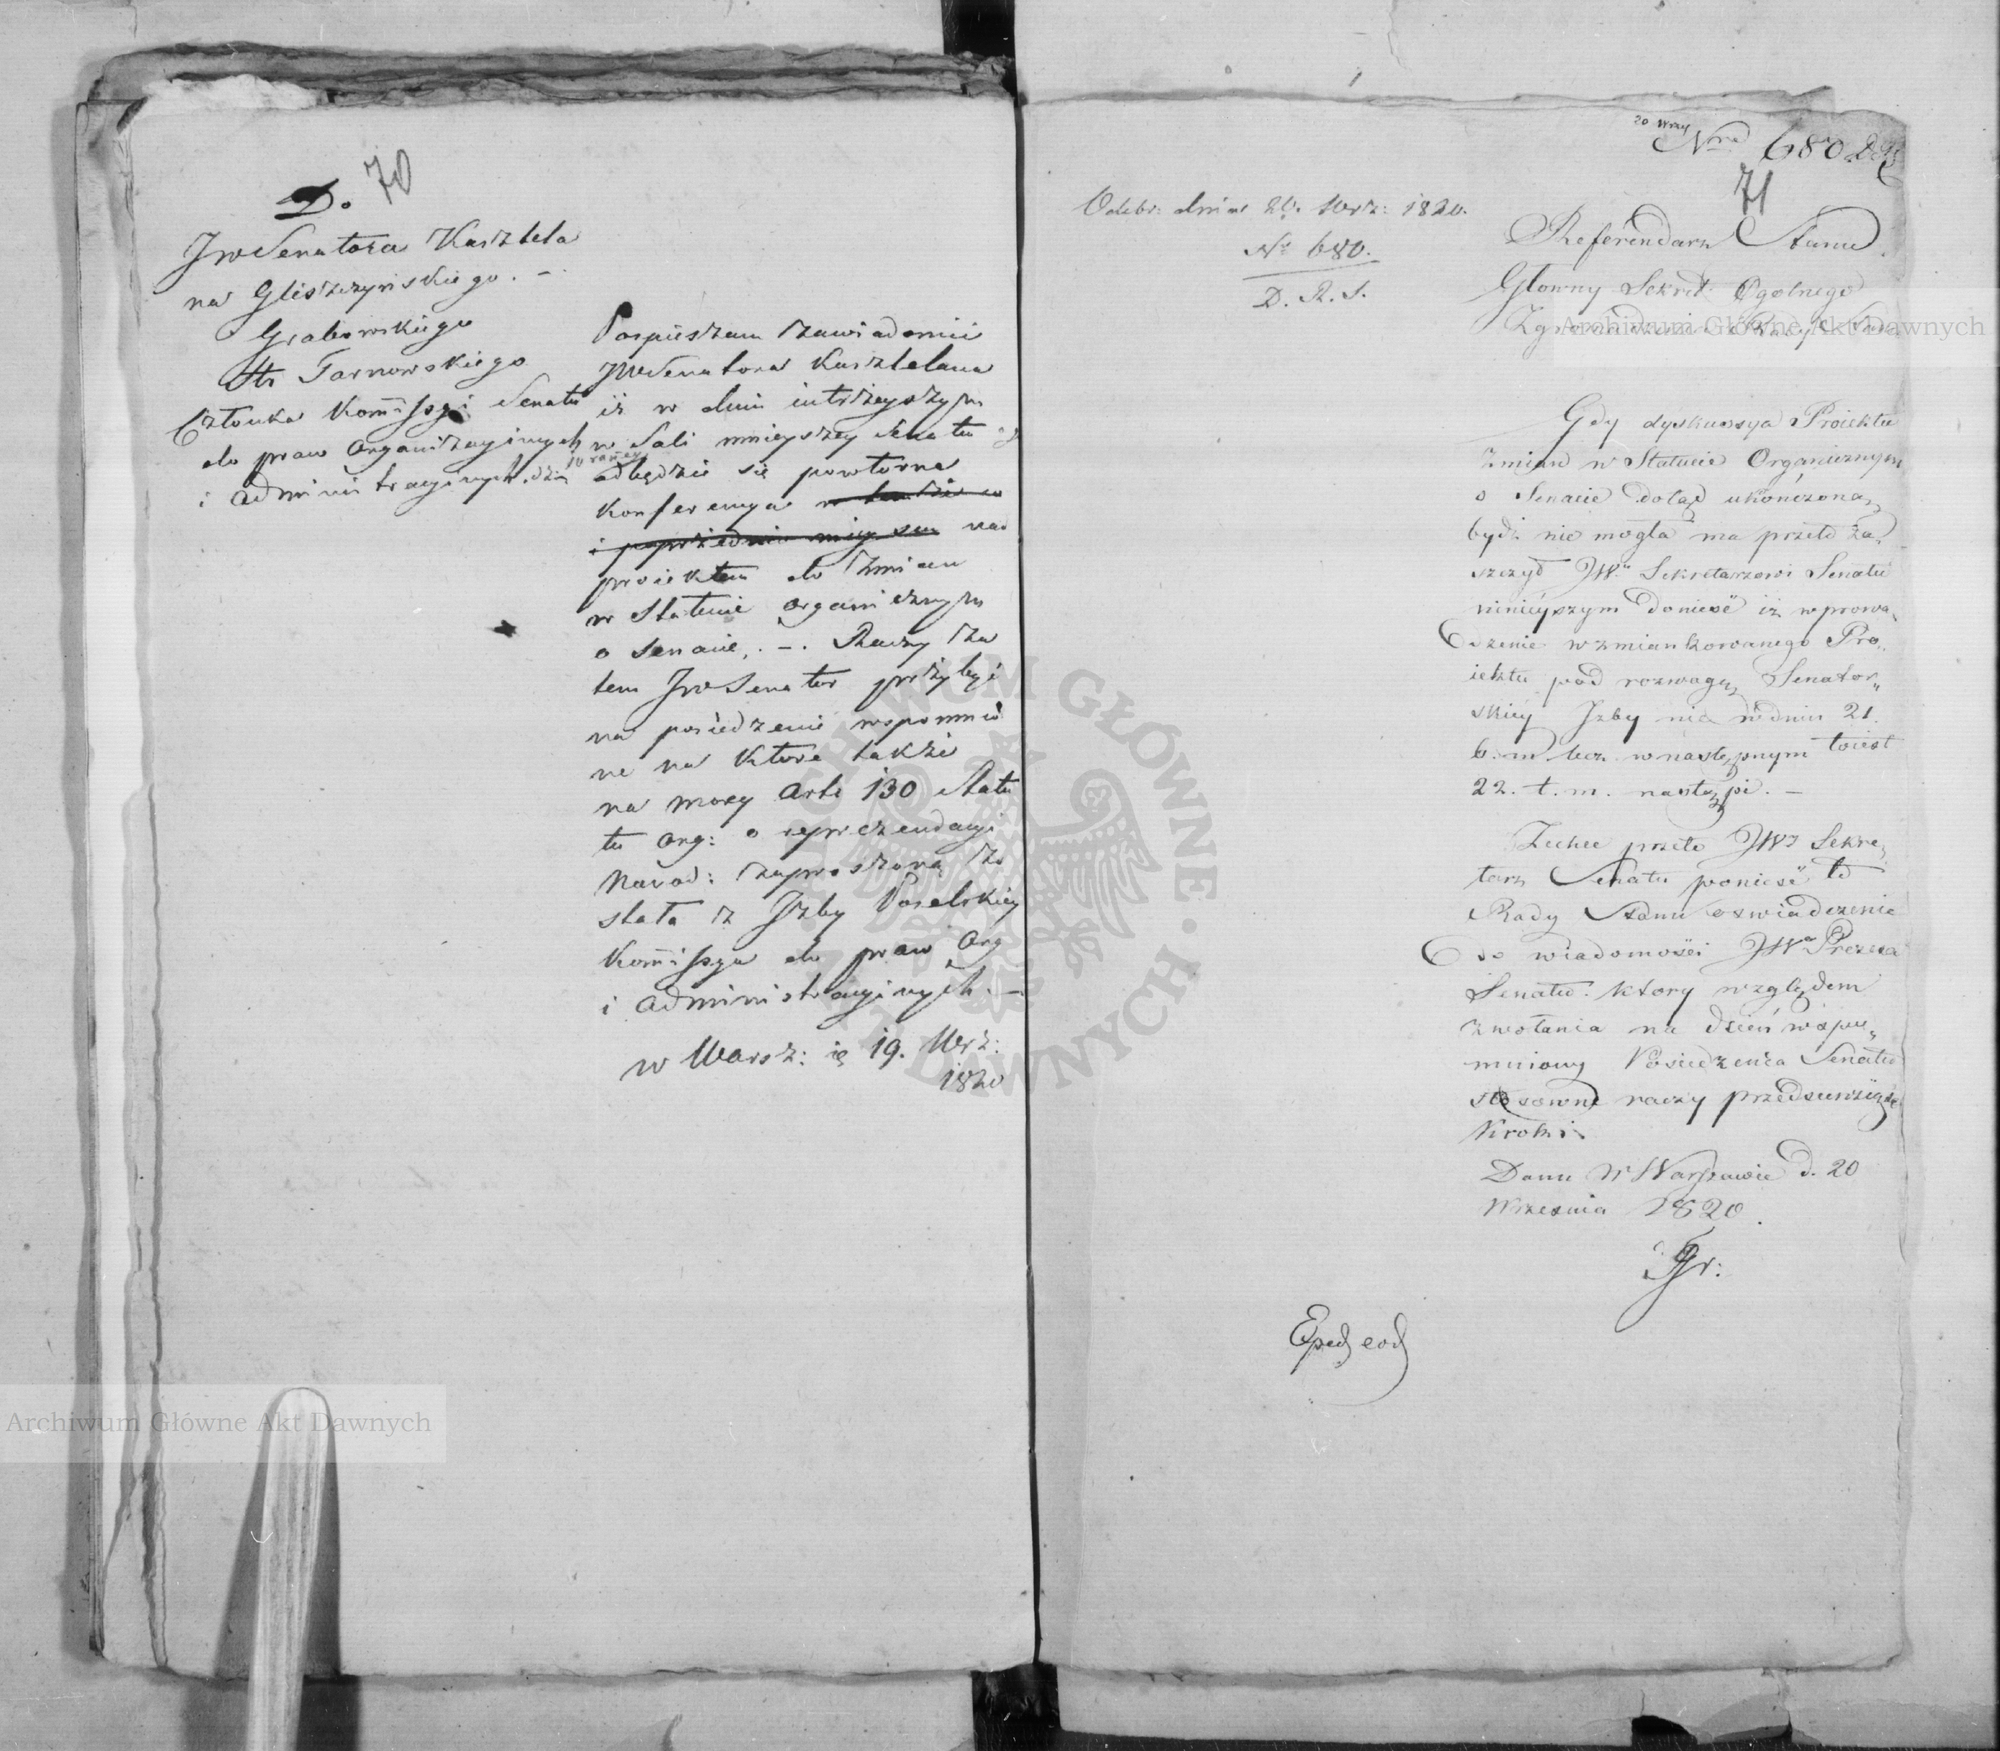 70
Do
JW Senatora Kasztela
na Gliszczyńskiego. –
Grabowskiego
Tarnowskiego
Członka Kommissyi Senatu
do praw Organizacyinych
i administracyinych
Pospieszam zawiadomić
JW Senatora Kasztelana
iż w dniu iutrzeyszym
w Sali mnieyszey Senatu
10 raney
odbędzie się powtórna
Konferencya
i poprzednio nad
proiektem do Zmian
w Statucie organicznym
o Senacie. –. Raczy Za
tem JW Senator przybydź
na posiedzenie wspomnio
ne na które także
na mocy Artu 130 Statu
tu Org: o reprezendacyi
Narod: zaproszoną zo
stała z Izby Poselskiey
Kommissya do praw Org
i administracyinych. –
w Warsz: 19. Wrz:
1820
20 Wrz
Nro 680
71
Odebr: dnia 20. Wrz: 1820.
No 680.
D. R. S.
Referendarz Stanu
Głowny Sekret. Ogolnego
Zgromadzenia Rady Stanu
Gdy dyskussya Proiektu
zmian w Statucie Organicznym
o Senacie dotąd ukończoną
bydź nie mogła ma przeto za„
szczyt JWu Sekretarzowi Senatu
ninieyszym donieść iż wprowa„
dzenie wzmiankowanego Pro„
iektu pod rozwagę Senator„
skiey Izby nie w dniu 21.
b. m. lecz w następnym toiest
22. t. m. nastąpi. –
Zechce przeto JWJ Sekre„
tarz Senatu ponieść to
Rady Stanu oświadczenie
do wiadomości JWo Prezesa
Senatu. ktory względem
zwołania na dzień wspo„
mniony Posiedzenia Senatu
stosowne raczy przedsięwziąść
Kroki
Danu w Warszawie d. 20
Września 1820.
Gr:
Exped eod
Archiwum Główne Akt Dawnych
Archiwum Główne Akt Dawnych
ARCHIWUM GŁÓWNE AKT DAWNYCH